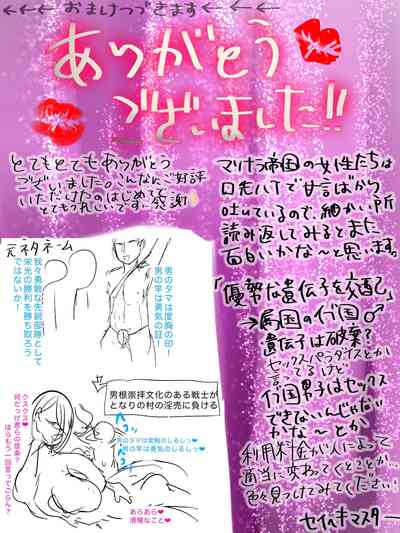 ←←← おまけつづきます ←←←
ありがとう
ございました!!
とてもとてもありがとう
ございました。こんなにご好評
いただけたのはじめてで
とてもうれしいです。感謝
マツナラ帝国の女性たちは
口先ハ丁で甘言ばかり
吐いているので、細かい所
読み返してみるとまた
面白いかな～と思います。
「優秀な遺伝子を交配」
→属国のイ少国♂
遺伝子は破棄?
セックスパラダイスとか
言ってるけど
イ少国男子はセックス
できないんじゃない
かな～とか
利用料金が人によって
適当に変わってくことか…
色々見つけてみてください!
セイヘキマスター
元ネタネーム
我々勇敢な先鋭部隊として
栄光の勝利を勝ち取ろう
ではないか!
男のタマは度胸の印!
男の竿は勇気の証!
男根崇拝文化のある戦士が
となりの村の淫売に負ける
クスクス♥
何だっけ君らの提条?
ほらもう一回言ってごらん?
男のタマは度胸のしるしっ♥
男の竿は勇気のしるしっ♥
あらあら♥
滑稽なこと♥